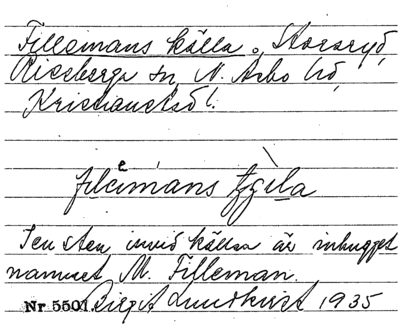 Fillemans källa, Storaryd,
Riseberga sn, N. Åsbo hd,
Kristianstad l.
I en sten invid källan är inhugget
namnet M. Filleman.
Nr 5501. Birgit Lundkvist 1935